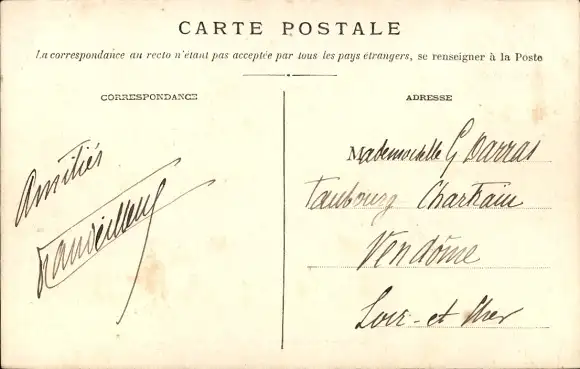 CARTE POSTALE
La correspondance au recto n'étant pas acceptée par tous les pays étrangers, se renseigner à la Poste
CORRESPONDANCE
ADRESSE
Amitiés
Mademoiselle G Darras
Faubourg Chartrain
Vendôme
Loir-et Cher